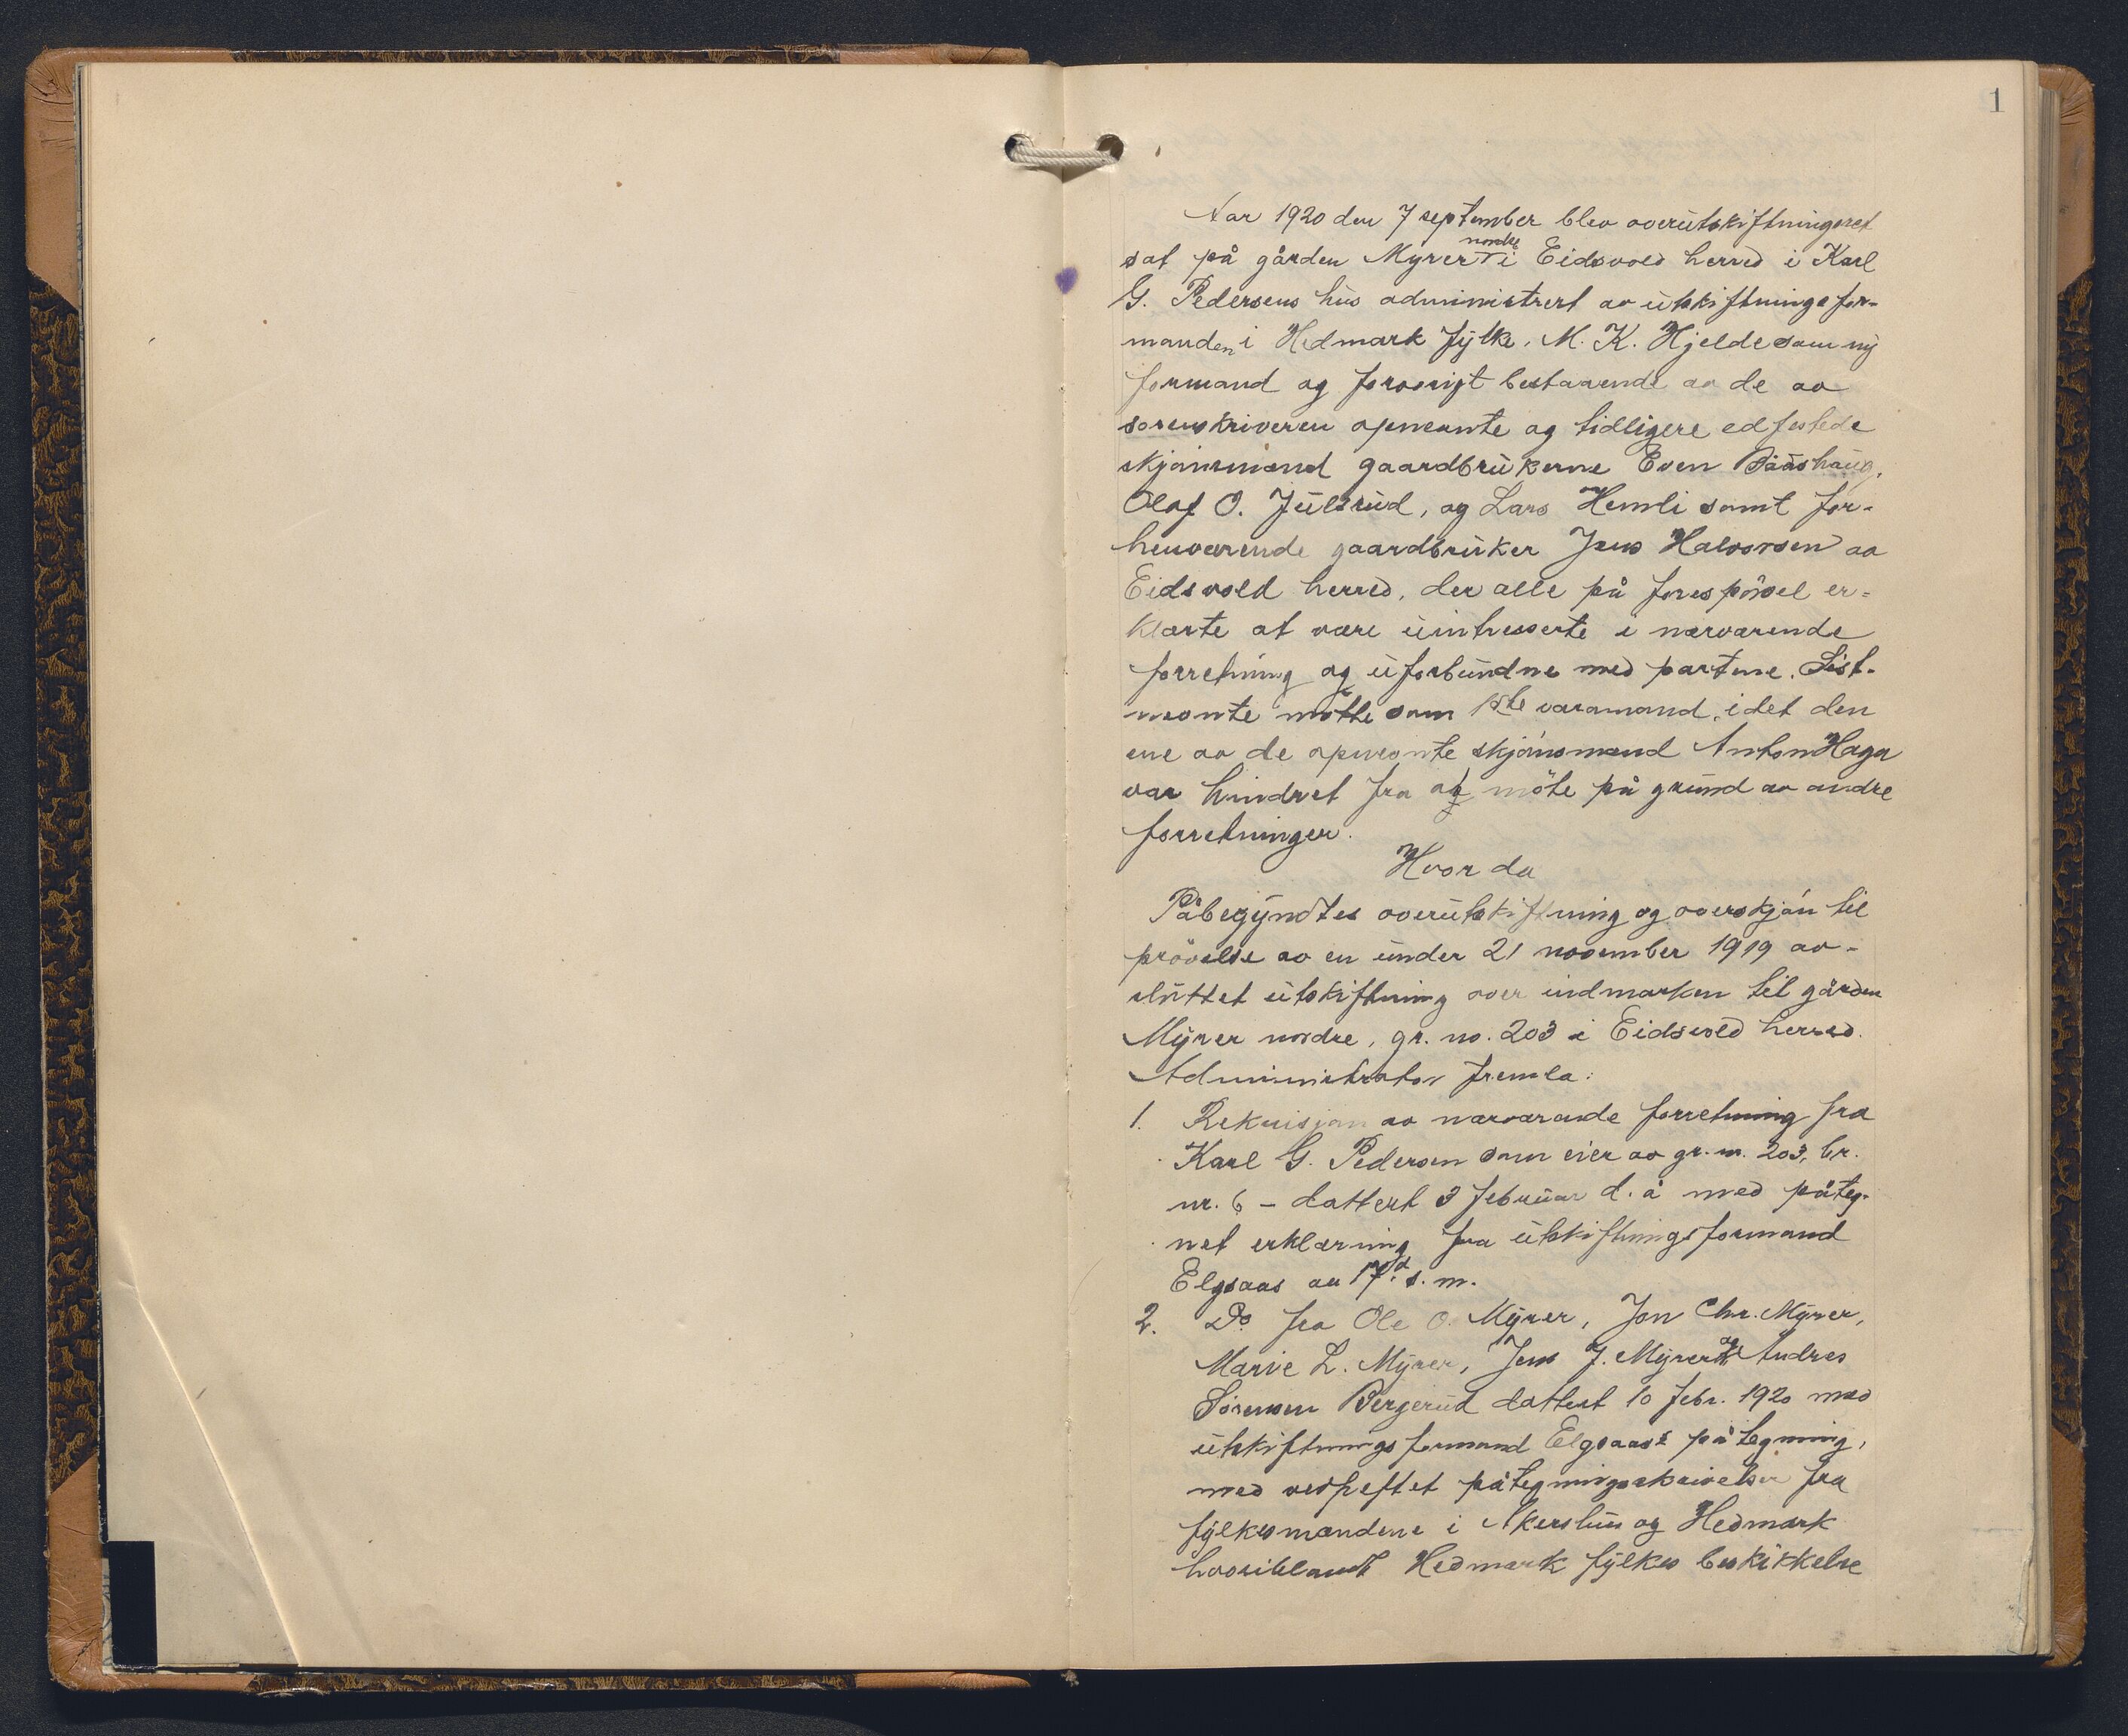 1
Aar 1920 den 7 september blev overutskiftningsret
sat på gården Myrer nordre i Eidsvold herred i Karl
G. Pedersens hus administrert av utskiftningsfor-
manden i Hedmark fylke, M. K. Hjelde som ny
formand og forøvrigt bestaaende av de av
sorenskriveren opnevnte og tidligere edfestede
skjønsmænd gaardbrukerne Even Dååshaug,
Olaf O. Julsrud, og Lars Hemli samt for-
henværende gaardbruker Jens Halvorsen av
Eidsvold herred, der alle på forespørsel er-
klærte at være uintresserte i nærværende
forretning og uforbundne med partene. Sist-
nevnte møtte som 1ste varamand, idet den
ene av de opnevnte skjønsmænd Anton Haga
var hindret fra at møte på grund av andre
forretninger.
Hvor da
Påbegyndtes overutskiftning og overskjøn til
prøvelse av en under 21 november 1919 av-
sluttet utskiftning over indmarken til gården
Myrer nordre, gr. no. 203 i Eidsvold herred.
Administrator fremla:
1. Rekvisjon av nærværende forretning fra
Karl G. Pedersen som eier av gr. nr. 203, br.
nr. 6 – dattert 3 februar d. å med påteg-
net erklæring fra utskiftningsformand
Elgsaas av 17. d. s. m.
2. Do fra Ole O. Myrer, Jon Chr. Myrer,
Marie L. Myrer, Jens J. Myrer og Andres
Sørensen Bergerud dattert 10 febr. 1920 med
utskiftningsformand Elgsaas's påtegning,
med vedheftet påtegningsskrivelser fra
fylkesmændene i Akershus og Hedmark
hvoriblandt Hedmark fylkes beskikkelse